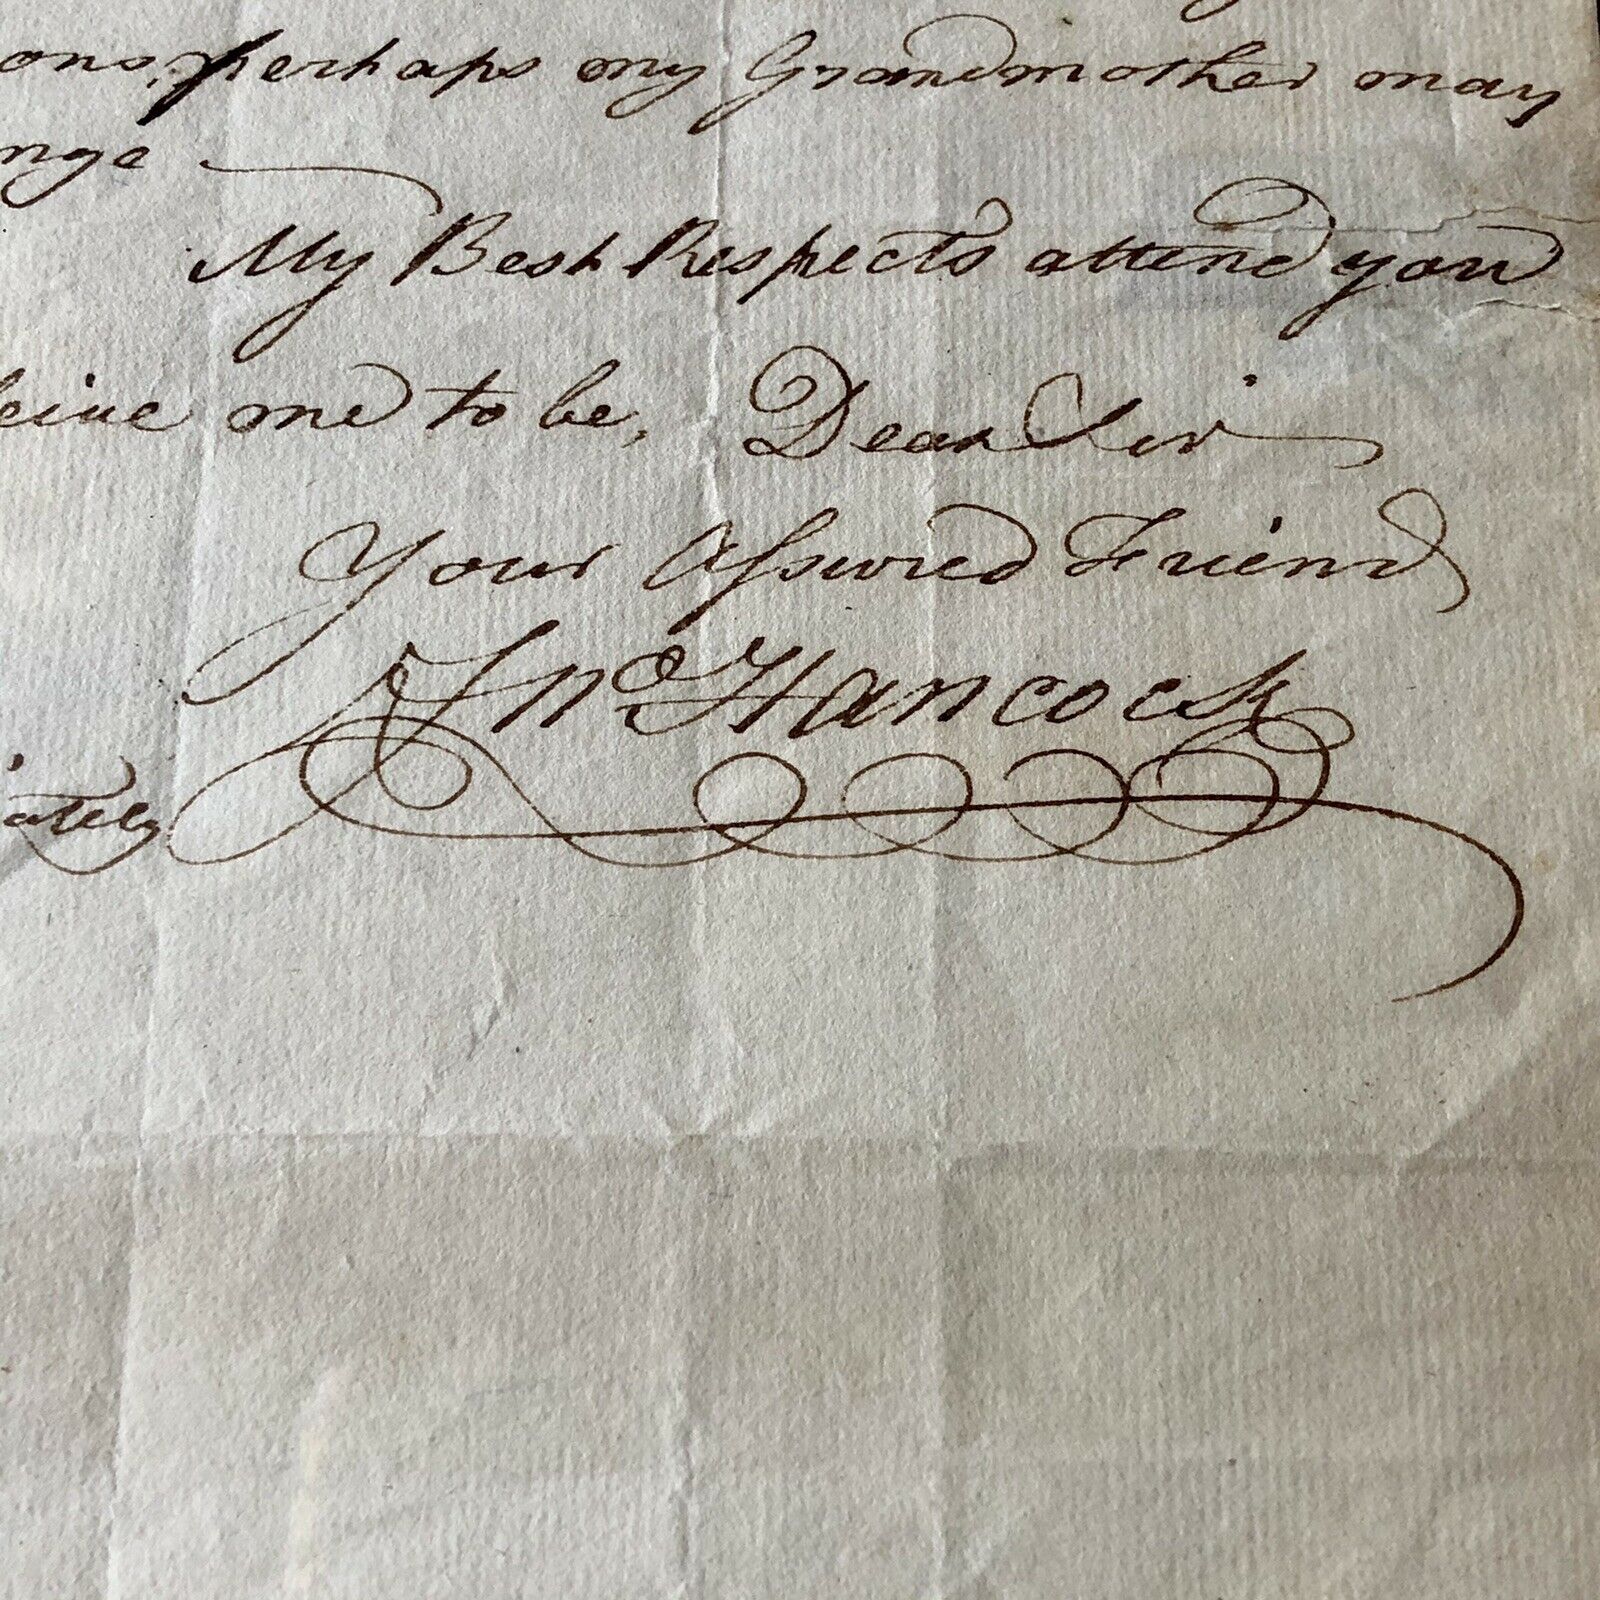 ons, perhaps my Grandmother may
nge
My Best Respects attend you
leive me to be, Dear Sir
Your Assured Friend
Jno Hancock
ately